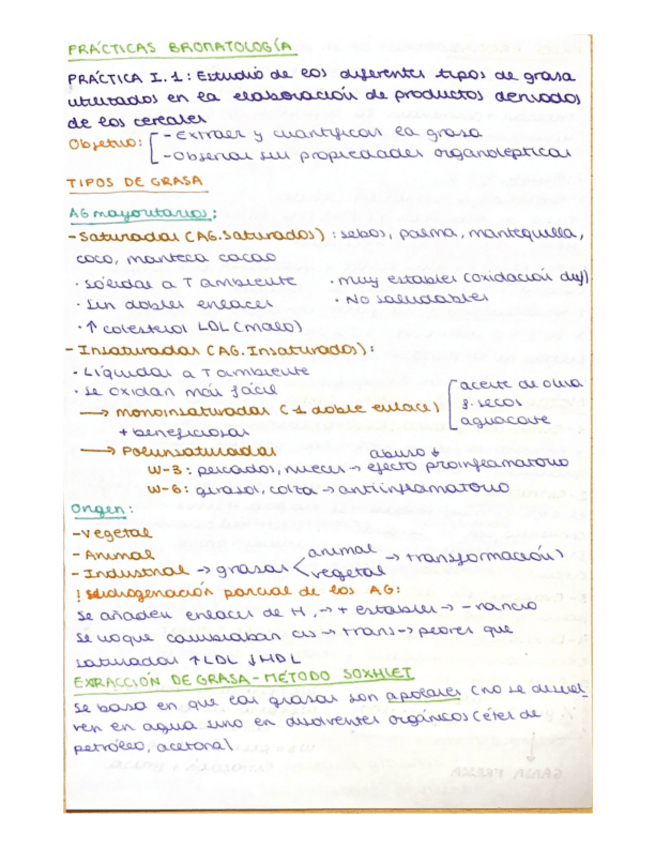 PRÁCTICAS BROMATOLOGÍA
PRÁCTICA I.1: Estudio de los diferentes tipos de grasa
utilizados en la elaboración de productos derivados
de los cereales
Objetivo: - Extraer y cuantificar la grasa
- Observar sus propiedades organolépticas
TIPOS DE GRASA
AG mayoritarios:
- Saturadas (AG.Saturados): sebos, palma, mantequilla,
coco, manteca cacao
· Sólidas a T ambiente · muy estables (oxidación difí)
· Sin dobles enlaces · No saludables
· ↑ colesterol LDL (malo)
- Insaturadas (AG.Insaturados):
· Líquidas a T ambiente
· Se oxidan más fácil
→ monoinsaturadas (-1 doble enlace) aceite de oliva
f. secos
aguacate
+ beneficiosas
→ Poliinsaturadas
abuso ↓
W-3: pescados, nueces → efecto proinflamatorio
W-6: girasol, colza → antiinflamatorio
Origen:
- Vegetal
- Animal
- Industrial → grasas < animal vegetal → transformación)
! Hidrogenación parcial de los AG:
Se añaden enlaces de H, → + estables → - rancio
Se vio que cambiaban cis → trans → peores que
saturadas ↑ LDL ↓ HDL
EXTRACCIÓN DE GRASA - MÉTODO SOXHLET
Se basa en que las grasas son apolares (no se disuel-
ven en agua sino en disolventes orgánicos (éter de
petróleo, acetona)